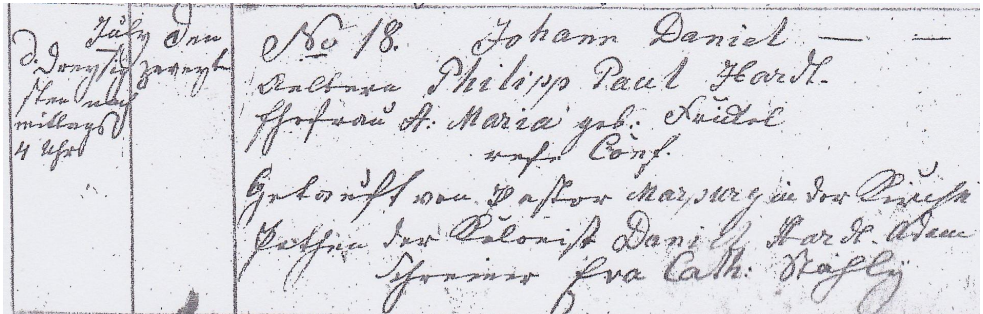 July den
d. Dreysig zweyt
sten nach
mittags
4 Uhr
No 18. Johann Daniel — —
Aeltern Philipp Paul Hardl.
Ehefrau A: Maria geb: Frickel
refr Conf.
Getauft von Pastor Marpurg in der Kirche
Pathen der Kolonist Daniel Hardl. Adam
Schreiner Eva Cath: Stähly